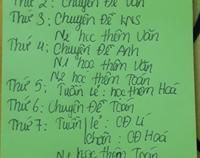 Thứ 2: Chuyên Đề Văn
Thứ 3: Chuyên Đề KNS
N2 học thêm Văn
Thứ 4: Chuyên Đề Anh
N1 học thêm Văn
N2 học thêm Toán
Thứ 5: Tuần lẻ: học thêm Hoá
Thứ 6: Chuyên Đề Toán
Thứ 7: Tuần lẻ: CĐ Lí
chẵn: CĐ Hoá
N1 học thêm Toán